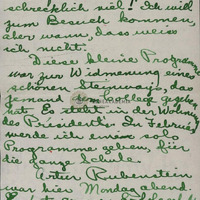 schrecklich viel! Ich will
zum Besuch kommen,
aber wann, dass weiss
ich nicht.
Diese kleine Programme
war zur Widmenung eines
schönen Steinways, das
jemand dem College gegeben
hat. Es steht in der Wohnung
des Präsidents. In Februar
werde ich einen solo
Programme geben, für
die ganze Schule.
Artur Rubenstein
war hier Montag abend.